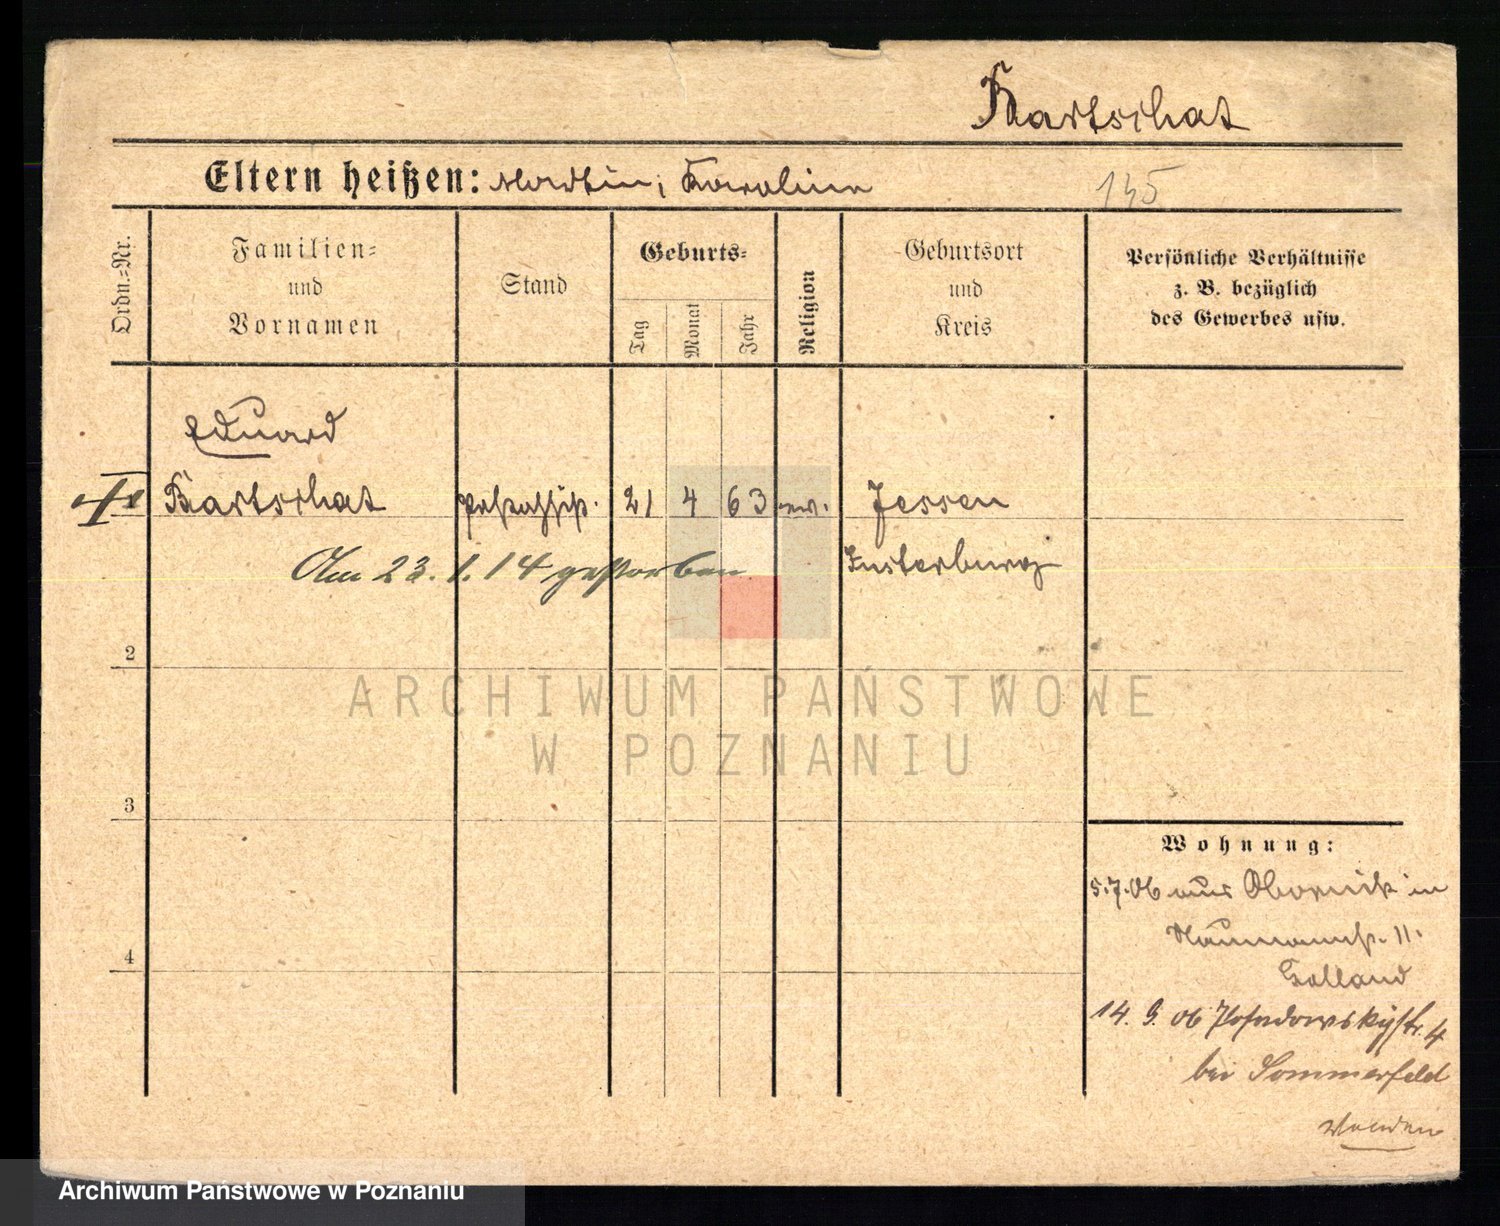 Bartschat
Eltern heißen: Martin, Karoline
145
Ordn.-Nr.
Familien-
und
Vornamen
Stand
Geburts-
Tag
Monat
Jahr
Religion
Geburtsort
und
Kreis
Persönliche Verhältnisse
z. B. bezüglich
des Gewerbes usw.
Eduard
1 Bartschat 21 4 63 ev. Jessen
Am 23. 1. 14 gestorben Insterburg
2
3
4
Wohnung:
5.7.06 aus Obornik in
Naumannst. 11.
Holland
14. 9. 06 Posadowskystr. 4
bei Sommerfeld
wenden
ARCHIWUM PAŃSTWOWE
W POZNANIU
Archiwum Państwowe w Poznaniu